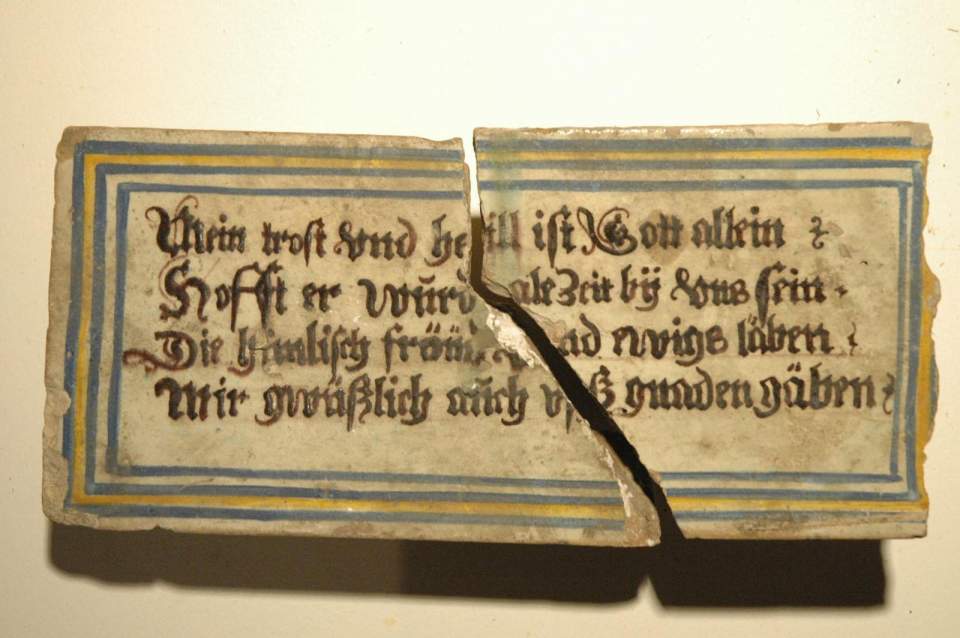 Mein trost vnd heill ist Gott allein
Hofft er würd alezeit bÿ vns sein
Die himlisch fröüd vnd ewigs läben
Mir gwüßlich aůch vß gnaden gäben